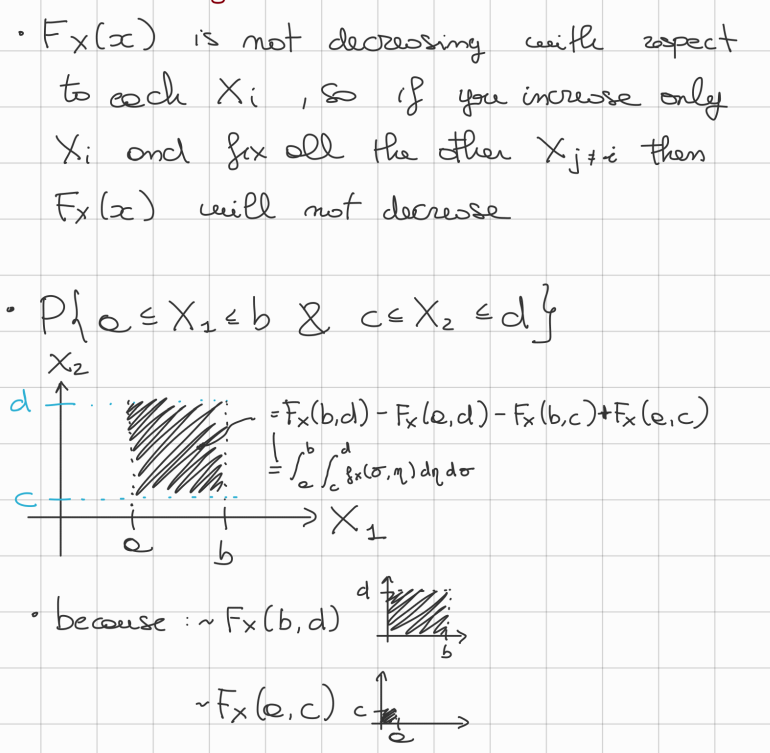 • Fx(x) is not decreasing with respect
to each Xi , so if you increase only
Xi and fix all the other Xj≠i then
Fx(x) will not decrease
• P{a ≤ X1 ≤ b & c ≤ X2 ≤ d}
X2
d
= Fx(b,d) - Fx(a,d) - Fx(b,c) + Fx(a,c)
= ∫_a^b ∫_c^d fx(σ,η) dη dσ
c
X1
a b
• because : ~ Fx(b,d) d
b
~ Fx(a,c) c
a